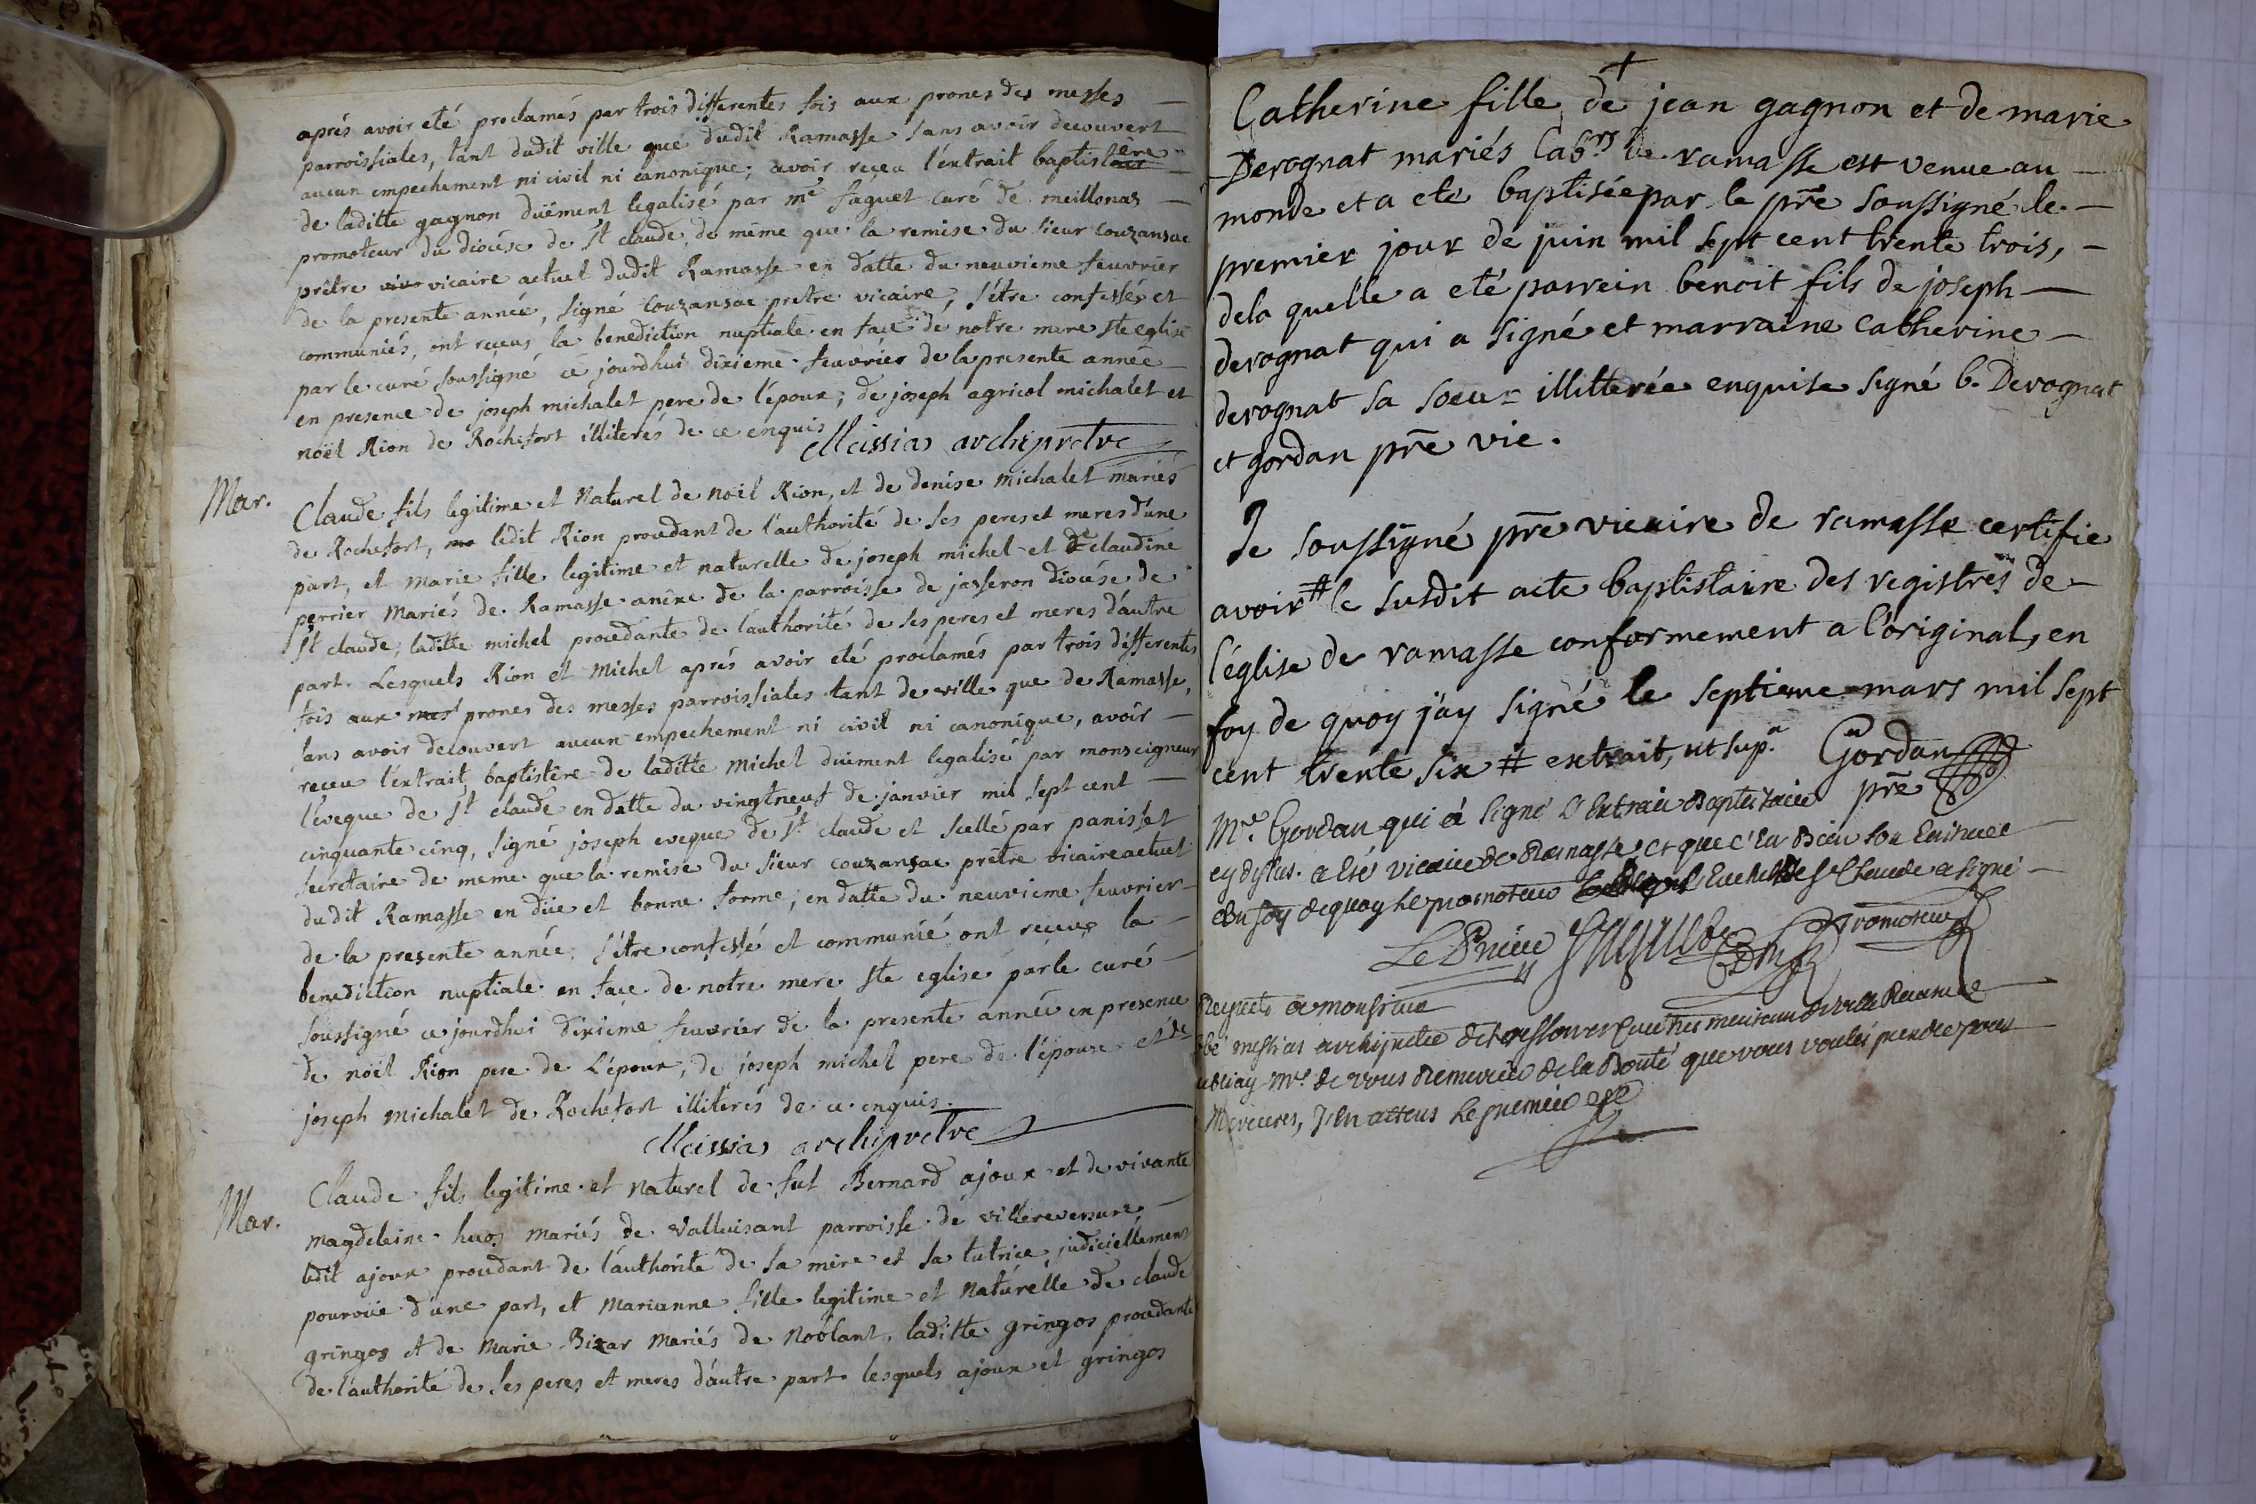 aprés avoir eté proclamés par trois differentes fois aux prones des messes
parroissiales, tant dudit ville que dudit Ramasse sans avoir decouvert
aucun empechement ni civil ni canonique; avoir reçeu l'extrait baptistère
de laditte gagnon duëment legalisé par me faguet curé de meillonas
promoteur du diocése de St claude, de même que la remise du sieur Couzansac
prêtre vicaire actuel dudit Ramasse en datte du neuvieme feuvrier
de la presente année, signé Couzansac pretre vicaire, s'étre confessés et
communiés, ont reçeus la benediction nuptiale en face de notre mere ste eglise
par le curé soussigné ce jourdhui dixieme feuvrier de la presente année
en presence de joseph michalet pere de l'époux; de joseph agricol michalet et
noël Rion de Rochefort illiterés de ce enquis
Meissias archipretre
Mar.
Claude fils legitime et Naturel de noël Rion, et de denise michalet mariés
de Rochefort, ledit Rion procedant de l'authorité de ses peres et meres d'une
part, et marie fille legitime et naturelle de joseph michel et de claudine
perrier mariés de Ramasse anéxe de la parroisse de jasseron diocése de
St claude; laditte michel procedante de l'authorité de ses peres et meres d'autre
part. Lesquels Rion et Michel aprés avoir eté proclamés par trois differentes
fois aux prones des messes parroissiales tant de ville que de Ramasse,
sans avoir decouvert aucun empechement ni civil ni canonique, avoir
reçeu l'extrait baptistère de laditte Michel duëment legalisé par monseigneur
l'éveque de St claude en datte du vingtneuf de janvier mil sept cent
cinquante cinq, signé joseph eveque de St claude et scellé par panisset
secretaire de meme que la remise du sieur couzansac prêtre vicaire actuel
dudit Ramasse en düe et bonne forme, en datte du neuvieme feuvrier
de la presente année; s'étre confessé et communié ont reçeus la
benediction nuptiale en face de notre mere ste eglise par le curé
soussigné ce jourdhui dixieme feuvrier de la presente année en presence
de noël Rion pere de L'époux, de joseph michel pere de l'épouse et de
joseph michalet de Rochefort illiterés de ce enquis.
Meissias archipretre
Mar.
Claude fils legitime et naturel de fut Bernard ajoux et de vivante
magdeleine huos mariés de Valluisant parroisse de villereversure
ledit ajoux procedant de l'authorité de sa mère et sa tutrice judiciellement
pourvüe d'une part, et Marianne fille legitime et Naturelle de claude
gringos et de Marie Bizar mariés de Noblant, laditte gringos procedante
de l'authorité de ses peres et meres d'autre part lesquels ajoux et gringos
Catherine fille de jean gagnon et de marie
Derognat mariés Labrs de ramasse est venue au
monde et a eté baptisée par le pre soussigné le
premier jour de juin mil sept cent trente trois,
dela quelle a eté parrein benoit fils de joseph
derognat qui a signé et marraine Catherine
derognat sa soeur illitterée enquise signé b. Derognat
et gordan pre vic.
Je soussigné pre vicaire de ramasse certifie
avoir # le susdit acte baptistaire des registres de
l'église de ramasse conformement a l'original, en
foy de quoy j'ay signé le septieme mars mil sept
cent trente six # extrait, ut sup.a Gordan
pre
Mre Gordan qui à signé l'extrait Baptistaire
cy dessus. a Eté vicaire de Ramasse, et que c'est Bien son Ecriture
En foy de quoy le promoteur de St Claude a signé
Le Prieur Promoteur
Respects a monsieur
Mrs de vous Remercier de la Bonté que vous voulés prendre pour